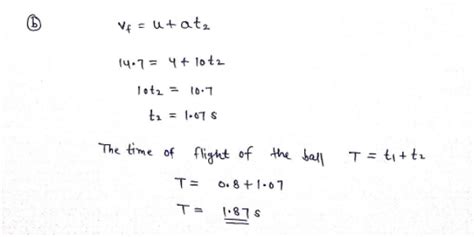 ⓑ v_f = u + at₂
14.7 = 4 + 10t₂
10t₂ = 10.7
t₂ = 1.07 s
The time of flight of the ball T = t₁ + t₂
T = 0.8 + 1.07
T = 1.87 s